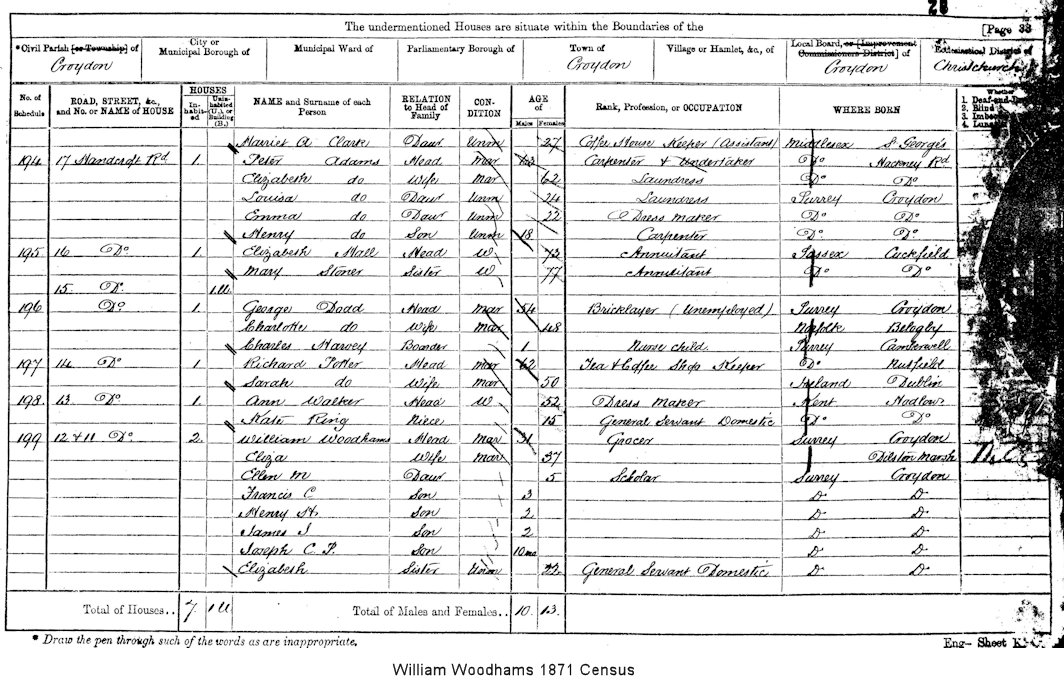 28
The undermentioned Houses are situate within the Boundaries of the [Page 33
*Civil Parish [or Township] of Croydon
City or Municipal Borough of
Municipal Ward of
Parliamentary Borough of
Town of Croydon
Village or Hamlet, &c., of
Local Board, or [Improvement Commissioners District] of Croydon
Ecclesiastical District of Christchurch
No. of Schedule
ROAD, STREET, &c., and No. or NAME of HOUSE
HOUSES
In-habit-ed
Unin-habited (U.), or Building (B.)
NAME and Surname of each Person
RELATION to Head of Family
CON-DITION
AGE of
Males Females
Rank, Profession, or OCCUPATION
WHERE BORN
Whether
1. Deaf-and-D
2. Blind
3. Imbec
4. Luna
Harriet A Clarke Daur Unm 27 Coffee House Keeper (Assistant) Middlesex St Georges
194 17 Handcroft Rd 1 Peter Adams Head Mar 63 Carpenter & Undertaker Do Hackney Rd
Elizabeth do Wife Mar 62 Laundress Do Do
Louisa do Daur Unm 24 Laundress Surrey Croydon
Emma do Daur Unm 22 Dress maker Do Do
Henry do Son Unm 18 Carpenter Do Do
195 16 Do 1 Elizabeth Hall Head W 73 Annuitant Sussex Cuckfield
Mary Stoner Sister W 77 Annuitant Do Do
15 Do 1U
196 Do 1 George Dodd Head Mar 54 Bricklayer (Unemployed) Surrey Croydon
Charlotte do Wife Mar 48 Norfolk
Charles Harvey Boarder 1 Nurse child Surrey Camberwell
197 14 Do 1 Richard Potter Head Mar 62 Tea & Coffee Shop Keeper Do Nutfield
Sarah do Wife Mar 50 Ireland Dublin
198 13 Do 1 Ann Walker Head W 52 Dress Maker Kent Hadlow
Kate King Niece 15 General Servant Domestic Do Do
199 12 & 11 Do 2 William Woodhams Head Mar 31 Grocer Surrey Croydon
Eliza Wife Mar 37 Dilston Marsh
Ellen M Daur 5 Scholar Surrey Croydon
Francis C Son 3 Do Do
Henry H. Son 2 Do Do
James J Son 2 Do Do
Joseph C. P. Son 10 mo Do Do
Elizabeth Sister Unm 22 General Servant Domestic Do Do
Total of Houses.. 7 1U Total of Males and Females.. 10 13
* Draw the pen through such of the words as are inappropriate.
Eng— Sheet K.
William Woodhams 1871 Census